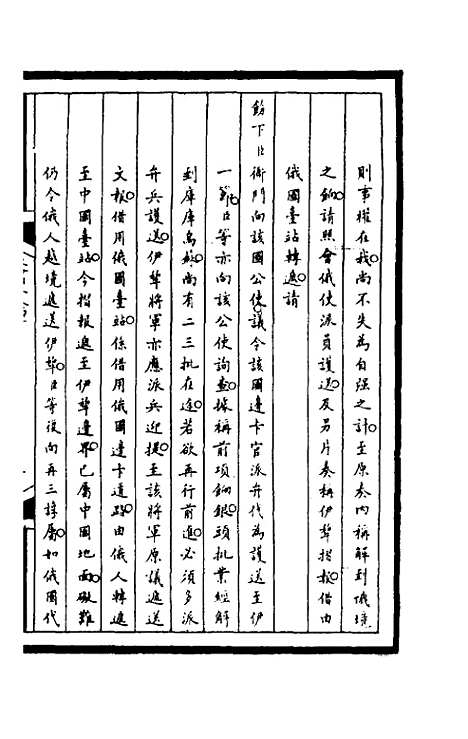 則事權在我尚不失為自强之計至原奏內稱解到俄境
之餉請照會俄使派員護送及另片奏稱伊犂摺報借由
俄國臺站轉遞請
飭下臣衙門向該國公使議令該國邊卡官派弁代為護送至伊
一節臣等亦向該公使詢查據稱前項餉銀頭批業經解
到庫庫烏蘇尚有二三批在途若欲再行前進必須多派
弁兵護送伊犂將軍亦應派兵迎提至該將軍原議遞送
文報借用俄國臺站係借用俄國邊卡道路由俄人轉遞
至中國臺站今摺報遞至伊犂邊界已屬中國地面礙難
仍令俄人越境遞送伊犂臣等復向再三諄屬如俄國代